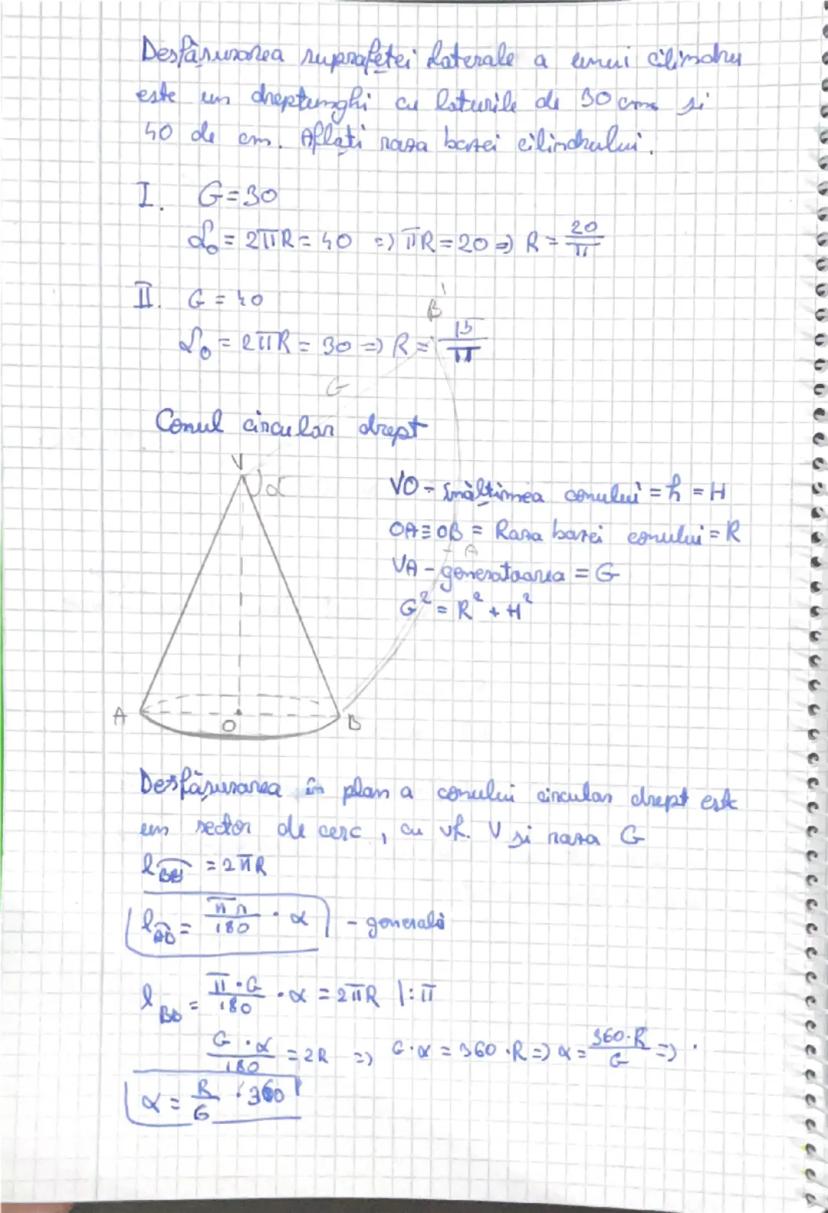 Desfășurarea suprafeței laterale a unui cilindru
este un dreptunghi cu laturile de 30 cm și
40 de cm. Aflați raza bazei cilindrului.
I. G=30
L₀ = 2πR = 40 => πR = 20 => R = 20/π
II. G = 40
B'
L₀ = 2πR = 30 => R = 15/π
G
Conul circular drept
V
α
VO - înălțimea conului = h = H
OA≡OB = Raza bazei conului = R
A
VA - generatoarea = G
G² = R² + H²
A
O
B
Desfășurarea în plan a conului circular drept este
un sector de cerc, cu vf. V și raza G
= 2πR
l = πr/180 · α - generală
l = π·G/180 · α = 2πR |:π
G·α/180 = 2R => G·α = 360·R => α = 360·R/G =>
α = R/G · 360